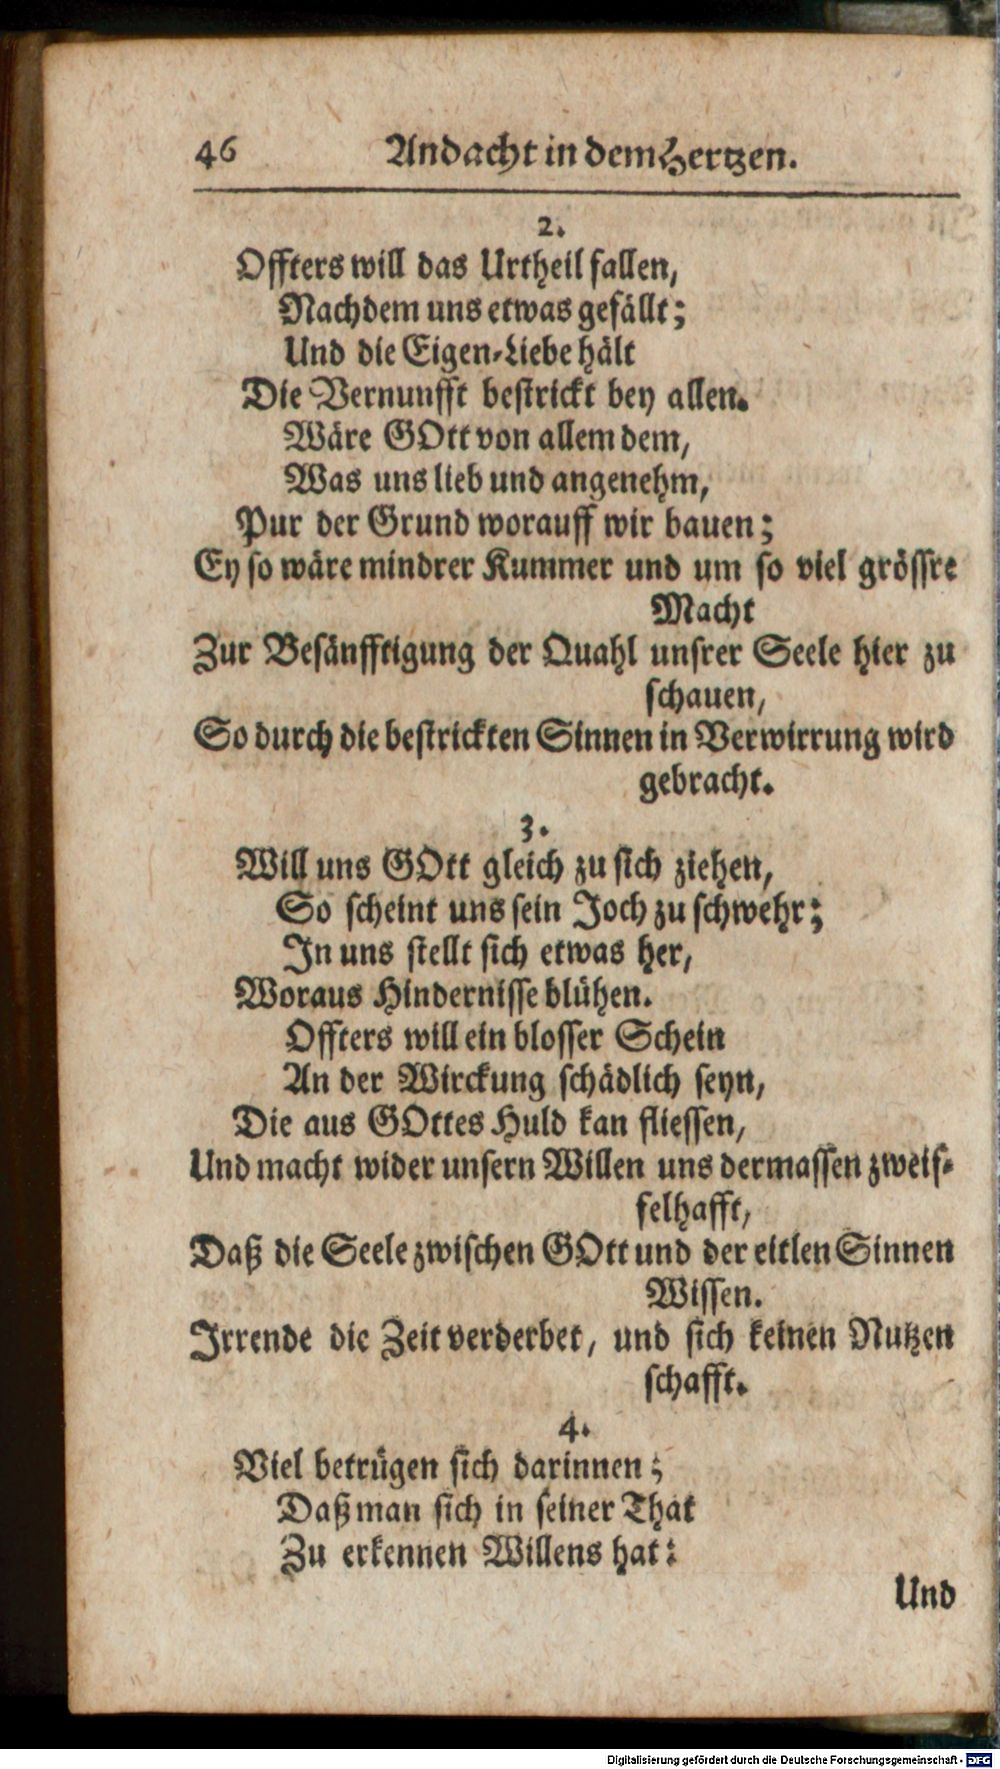 46 Andacht in dem Hertzen.
2.
Offters will das Urtheil fallen,
Nachdem uns etwas gefällt;
Und die Eigen-Liebe hält
Die Vernunfft bestrickt bey allen.
Wäre GOtt von allem dem,
Was uns lieb und angenehm,
Pur der Grund worauff wir bauen;
Ey so wäre mindrer Kummer und um so viel grössre
Macht
Zur Besänfftigung der Quahl unsrer Seele hier zu
schauen,
So durch die bestrickten Sinnen in Verwirrung wird
gebracht.
3.
Will uns GOtt gleich zu sich ziehen,
So scheint uns sein Joch zu schwehr;
In uns stellt sich etwas her,
Woraus Hindernisse blühen.
Offters will ein blosser Schein
An der Wirckung schädlich seyn,
Die aus GOttes Huld kan fliessen,
Und macht wider unsern Willen uns dermassen zweif-
felhafft,
Daß die Seele zwischen GOtt und der eitlen Sinnen
Wissen.
Irrende die Zeit verderbet, und sich keinen Nutzen
schafft.
4.
Viel betrügen sich darinnen;
Daß man sich in seiner That
Zu erkennen Willens hat:
Und
Digitalisierung gefördert durch die Deutsche Forschungsgemeinschaft - DFG